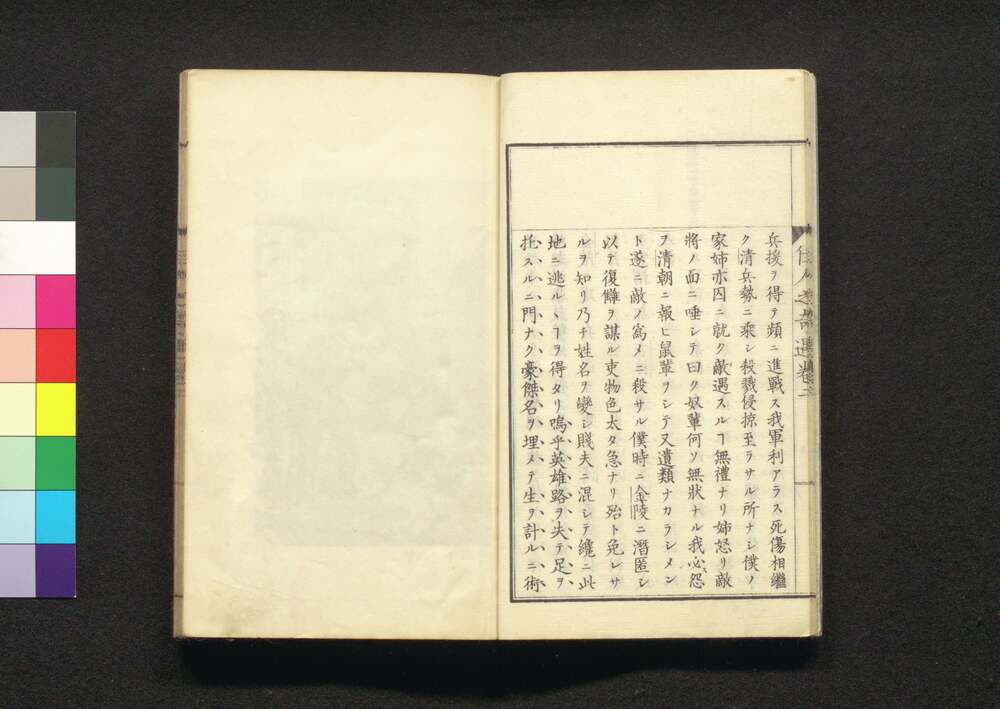 佳人之奇遇卷二
兵援ヲ得テ頻ニ進戰ス我軍利アラス死傷相繼
ク清兵勢ニ乘シ殺戮侵掠至ラサル所ナシ僕ノ
家姉亦囚ニ就ク敵遇スルヿ無禮ナリ姉怒リ敵
將ノ面ニ唾シテ曰ク奴輩何ソ無狀ナル我必怨
ヲ清朝ニ報ヒ鼠輩ヲシテ又遺類ナカラシメン
ト遂ニ敵ノ爲メニ殺サル僕時ニ金陵ニ潛匿シ
以テ復讎ヲ謀ル吏物色太タ急ナリ殆ト免レサ
ルヲ知リ乃チ姓名ヲ變シ賤夫ニ混シテ纔ニ此
地ニ逃ルヽヿヲ得タリ嗚乎英雄路ヲ失テ足ヲ
托スルニ門ナク豪傑名ヲ埋メテ生ヲ計ルニ術